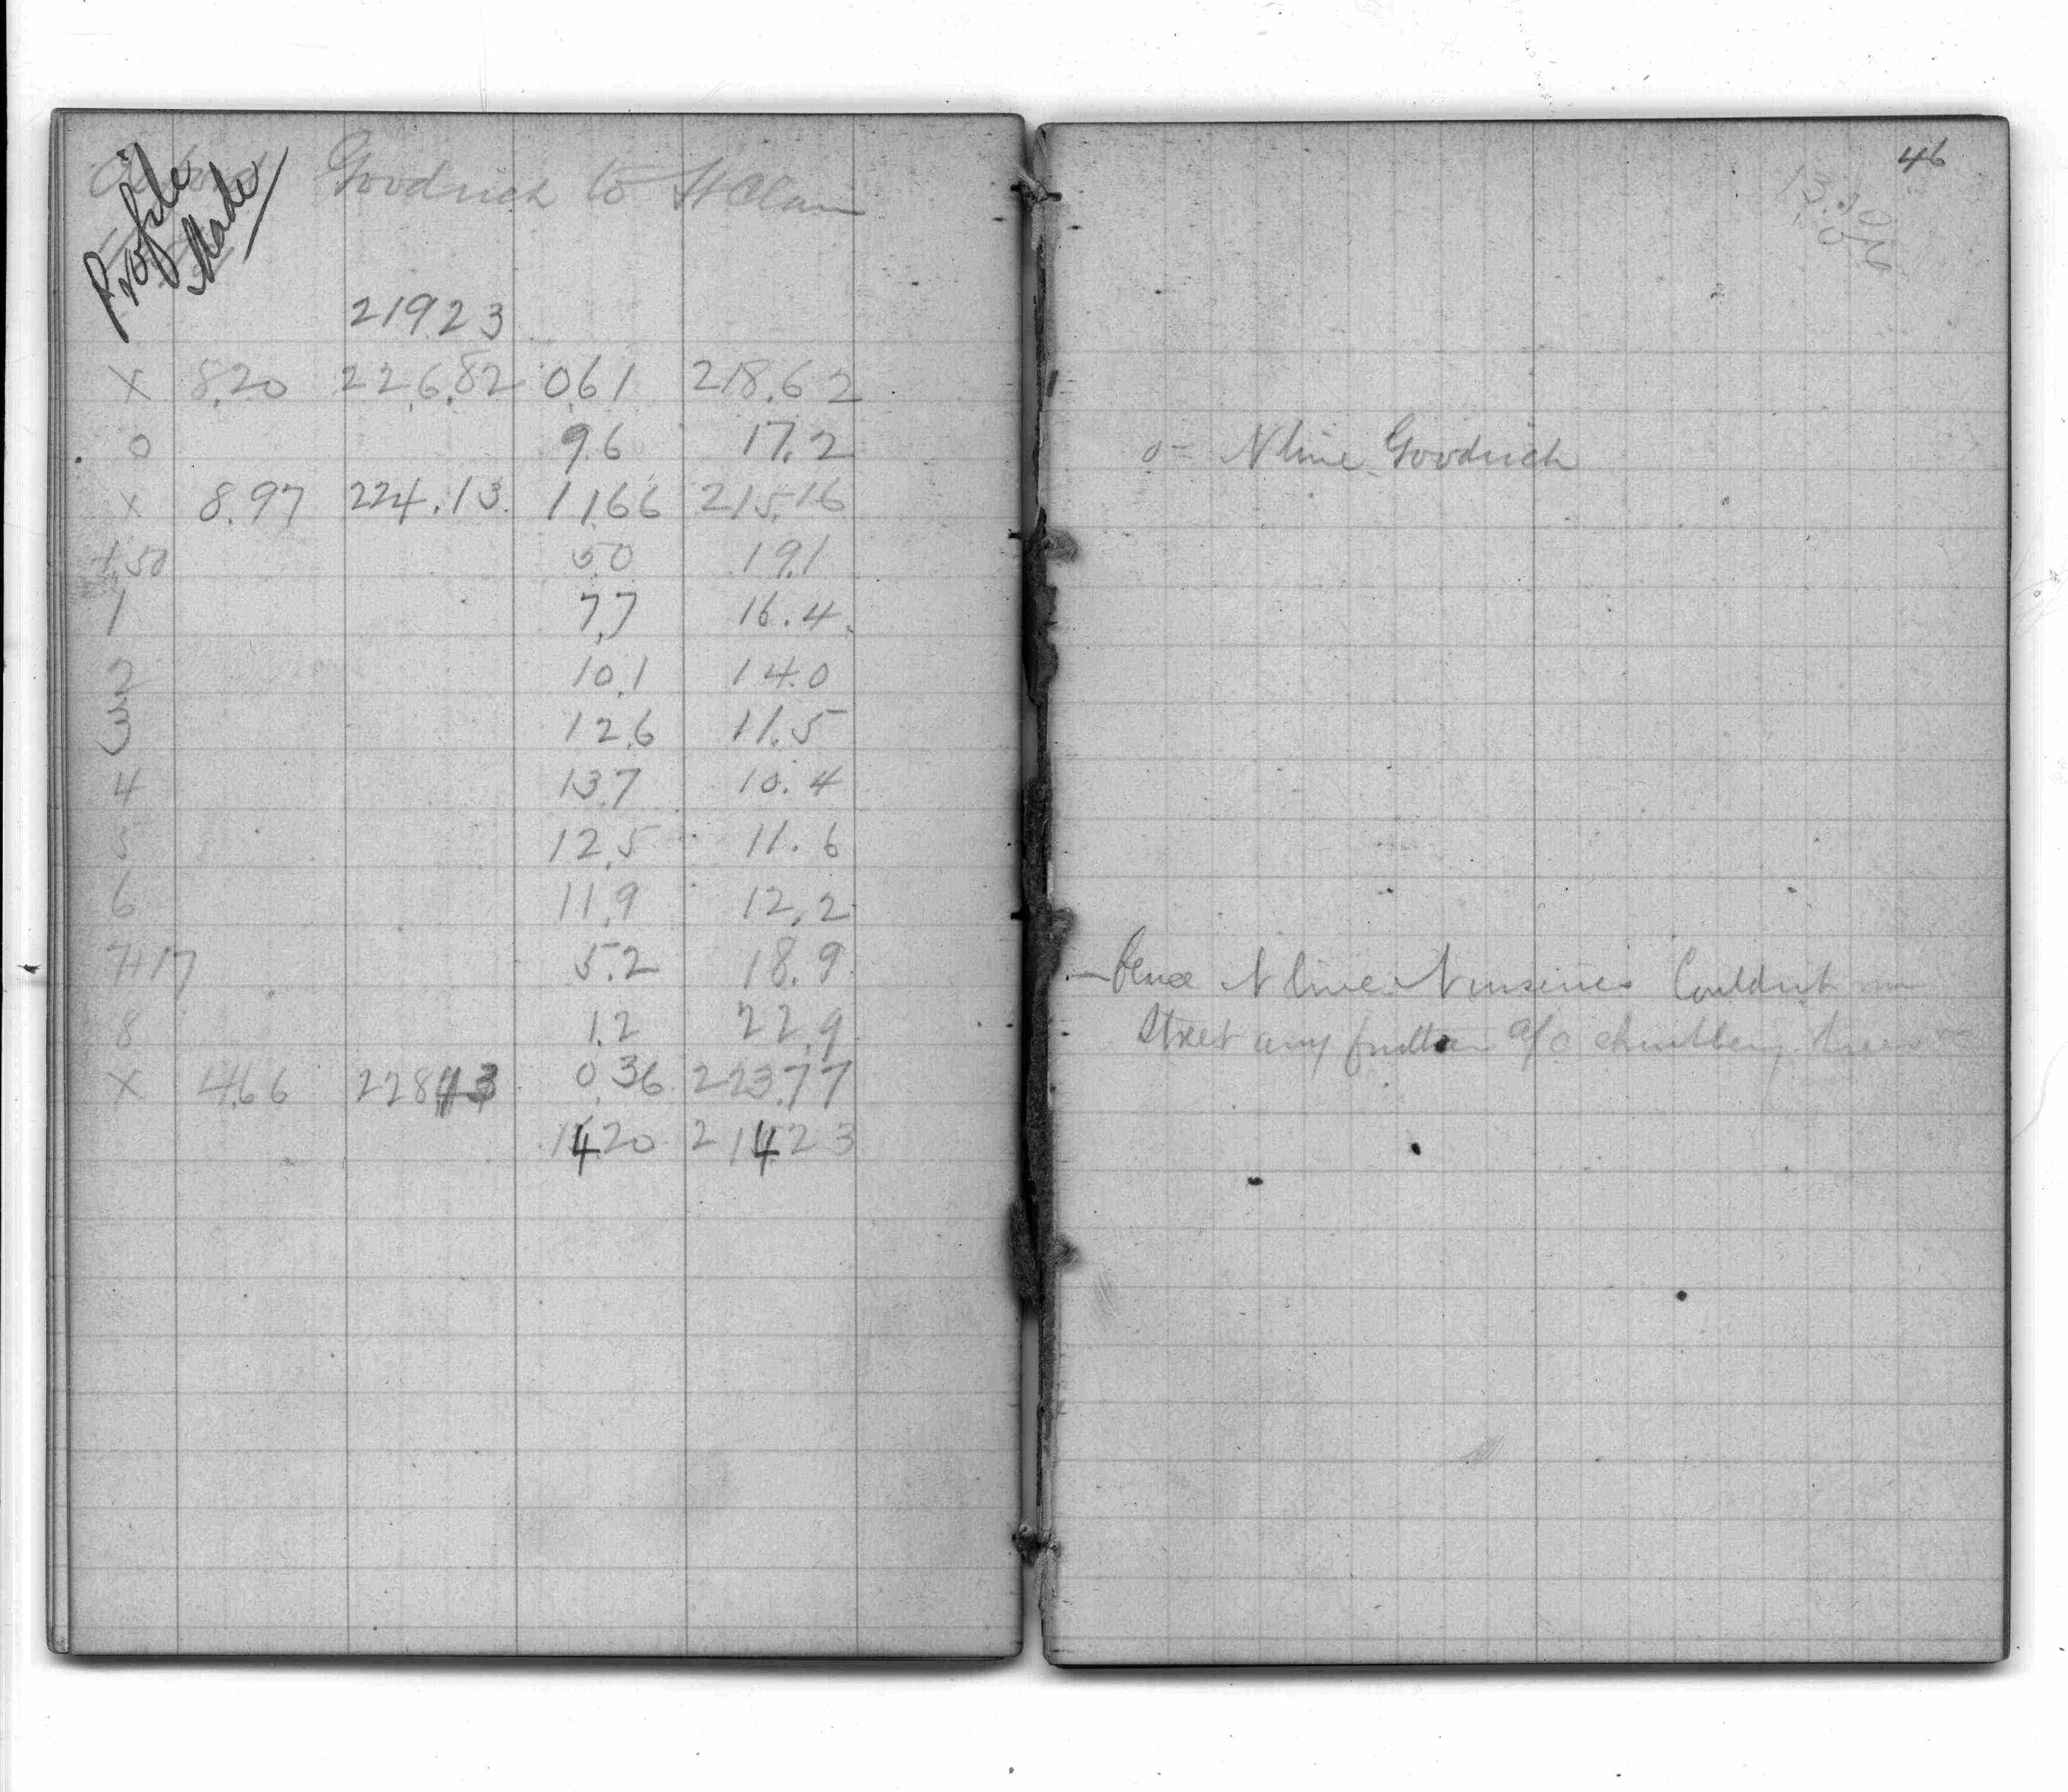 Profile
Made
Goodrich to St Clair
219 23
X 8.20 226.82 0.61 218.62
0 9.6 17.2
X 8.97 224.13 11.66 215.16
+50 5.0 19.1
1 7.7 16.4
2 10.1 14.0
3 12.6 11.5
4 13.7 10.4
5 12.5 11.6
6 11.9 12.2
7+17 5.2 18.9
8 1.2 22.9
X 4.66 228.43 0.36 223.77
14.20 214.23
46
13.10
.06
0 = N line Goodrich
— Fence N line Nurseries Couldn't run
Street any further a/c shrubbery trees